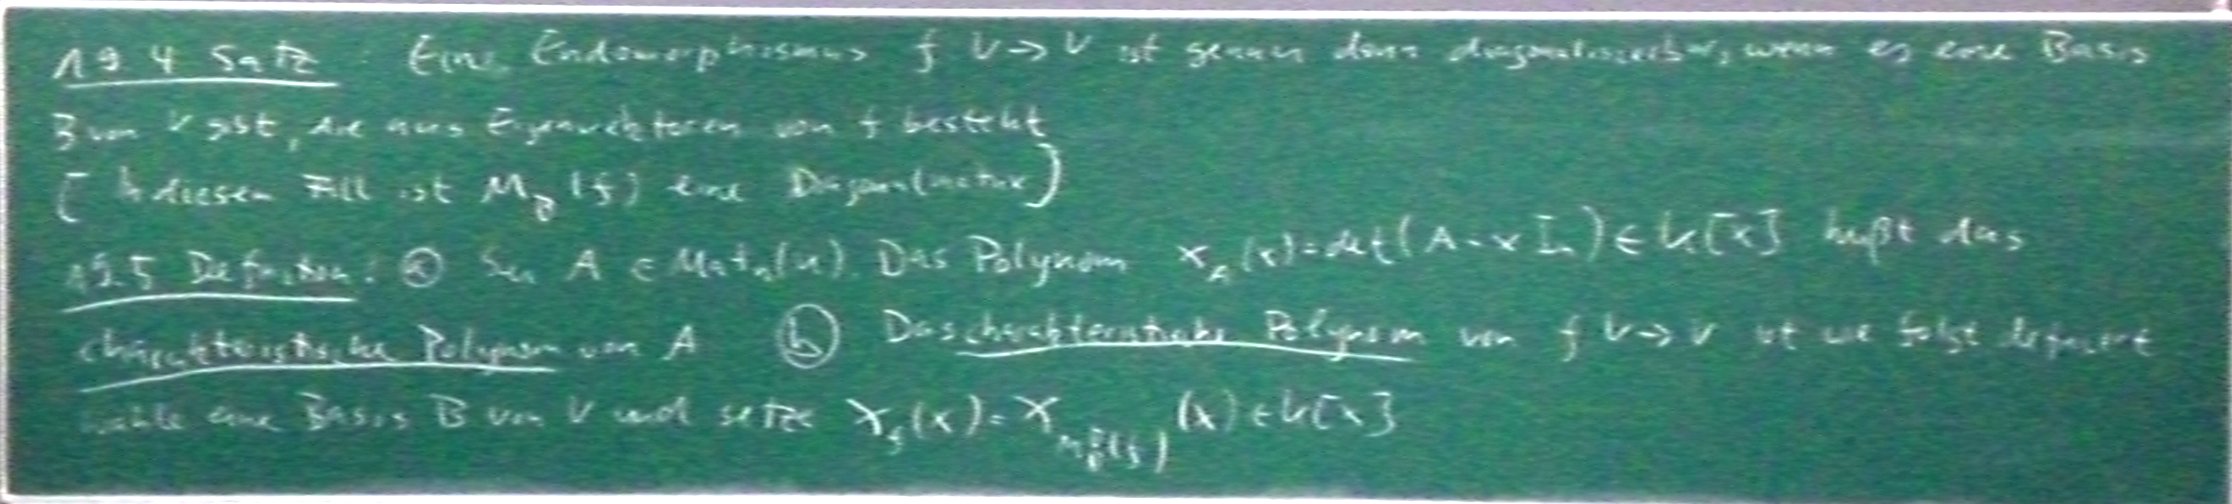 19.4 Satz: Ein Endomorphismus f: V → V ist genau dann diagonalisierbar, wenn es eine Basis
B von V gibt, die aus Eigenvektoren von f besteht
[In diesem Fall ist M_B(f) eine Diagonalmatrix]
19.5 Definition: (a) Sei A ∈ Mat_n(K). Das Polynom χ_A(x) = det(A - x I_n) ∈ K[x] heißt das
charakteristische Polynom von A (b) Das charakteristische Polynom von f: V → V ist wie folgt definiert
wähle eine Basis B von V und setze χ_f(x) = χ_{M_B^B(f)}(x) ∈ K[x]